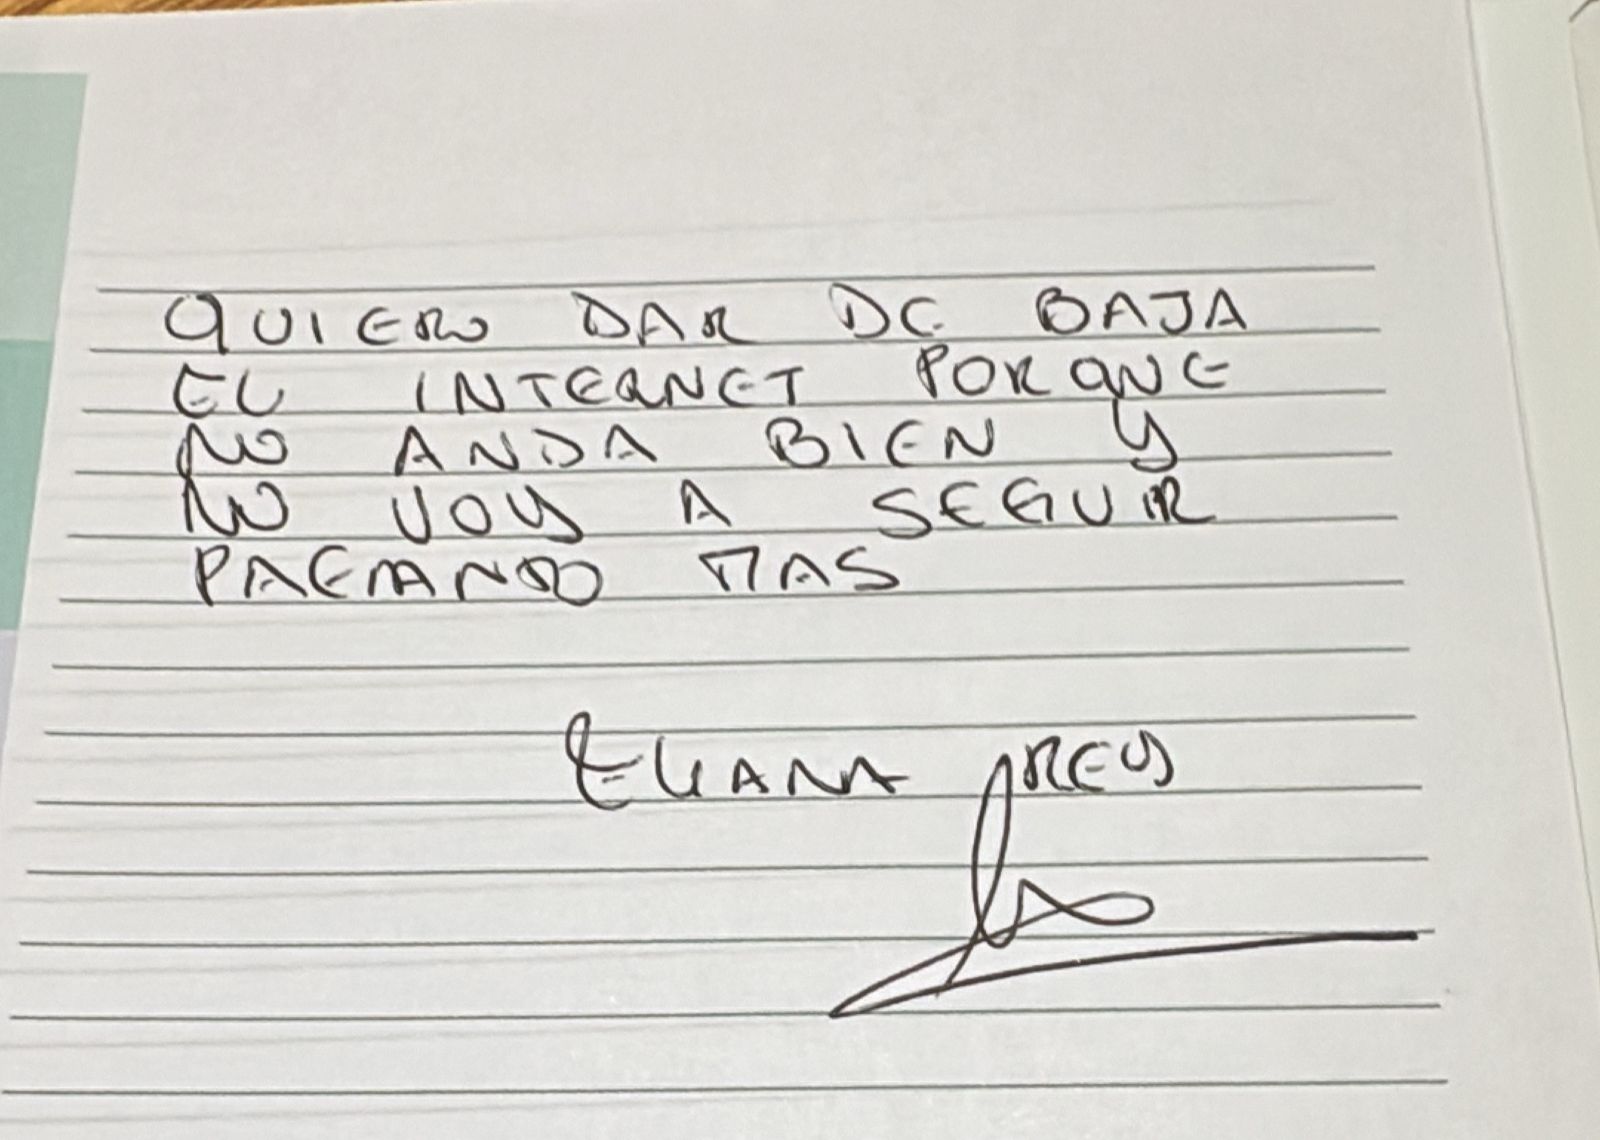 QUIERO DAR DE BAJA
EL INTERNET PORQUE
NO ANDA BIEN Y
NO VOY A SEGUIR
PAGANDO MAS
ELIANA REY